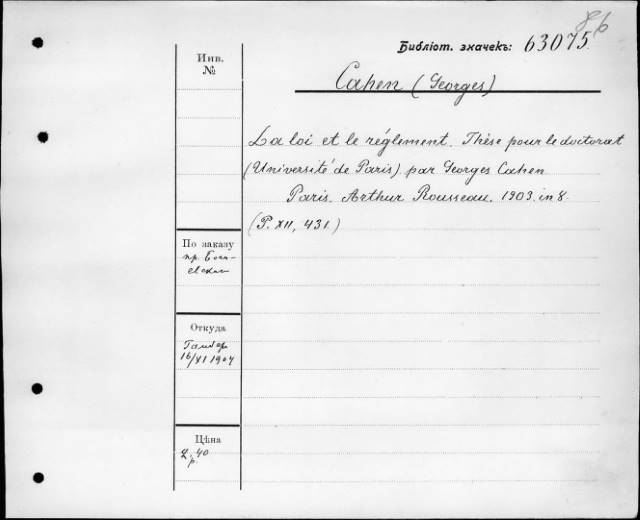 Библіот. значекъ: 63075
Cahen (Georges)
Инв.
№
La loi et le réglement. Thèse pour le doctorat
(Université de Paris) par Georges Cahen
Paris. Arthur Rousseau. 1903. in 8.
(P. XII, 431.)
По заказу
пр.
Откуда
16/XI 1904
Цѣна
2 р. 40